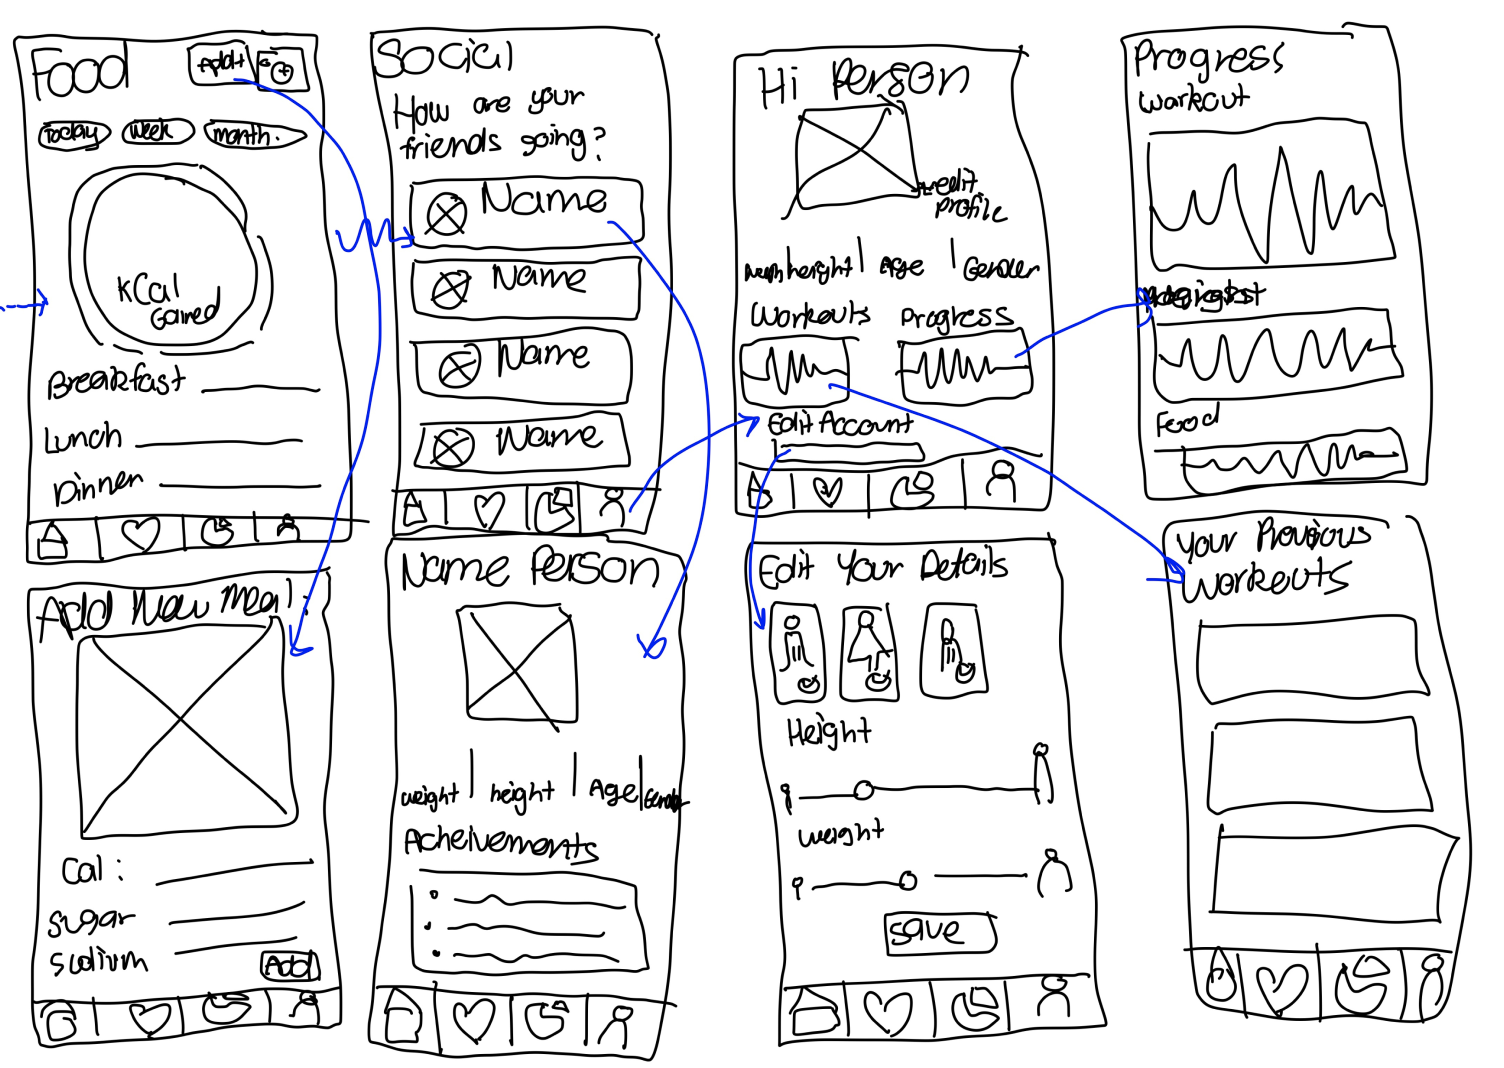 Food
Add+
Today
week
month.
KCal
Gained
Breakfast
Lunch
Dinner
Add New Meal:
Cal:
Sugar
Sodium
Add
Social
How are your
friends going?
Name
Name
Name
Name
Name Person
weight | height | Age | Gender
Acheivements
Hi Person
edit
profile
height | Age | Gender
Workouts Progress
Edit Account
Edit Your Details
Height
weight
save
Progress
Workout
Food
Your Previous
Workouts